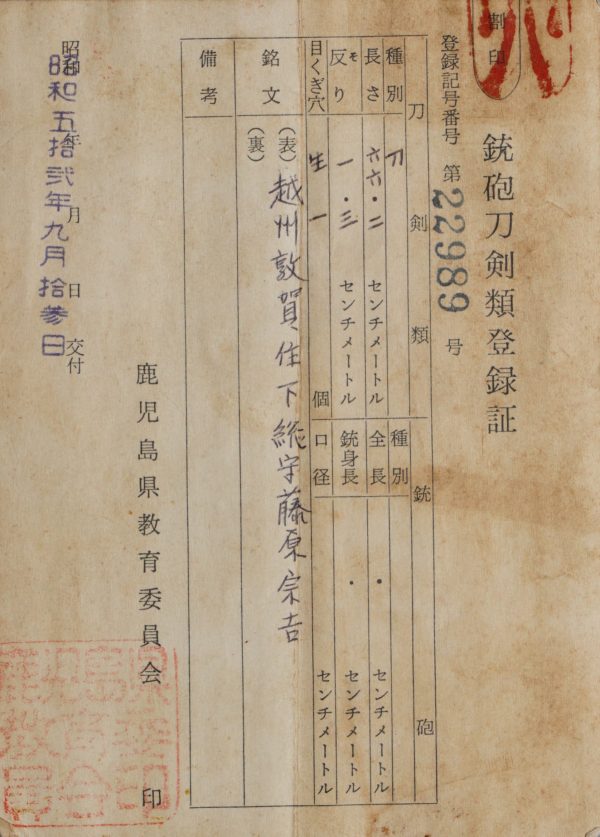 割印
銃砲刀剣類登録証
登録記号番号 第 22989 号
刀剣類
種別 刀
長さ 六六・二 センチメートル
反り 一・三 センチメートル
ソ
目くぎ穴 生 一 個
銃砲
種別
全長 ・ センチメートル
銃身長 ・ センチメートル
口径 センチメートル
銘文
(表) 越州敦賀住下総守藤原宗吉
(裏)
備考
昭和 年 月 日 交付
昭和五拾弐年九月拾参日
鹿児島県教育委員会 印